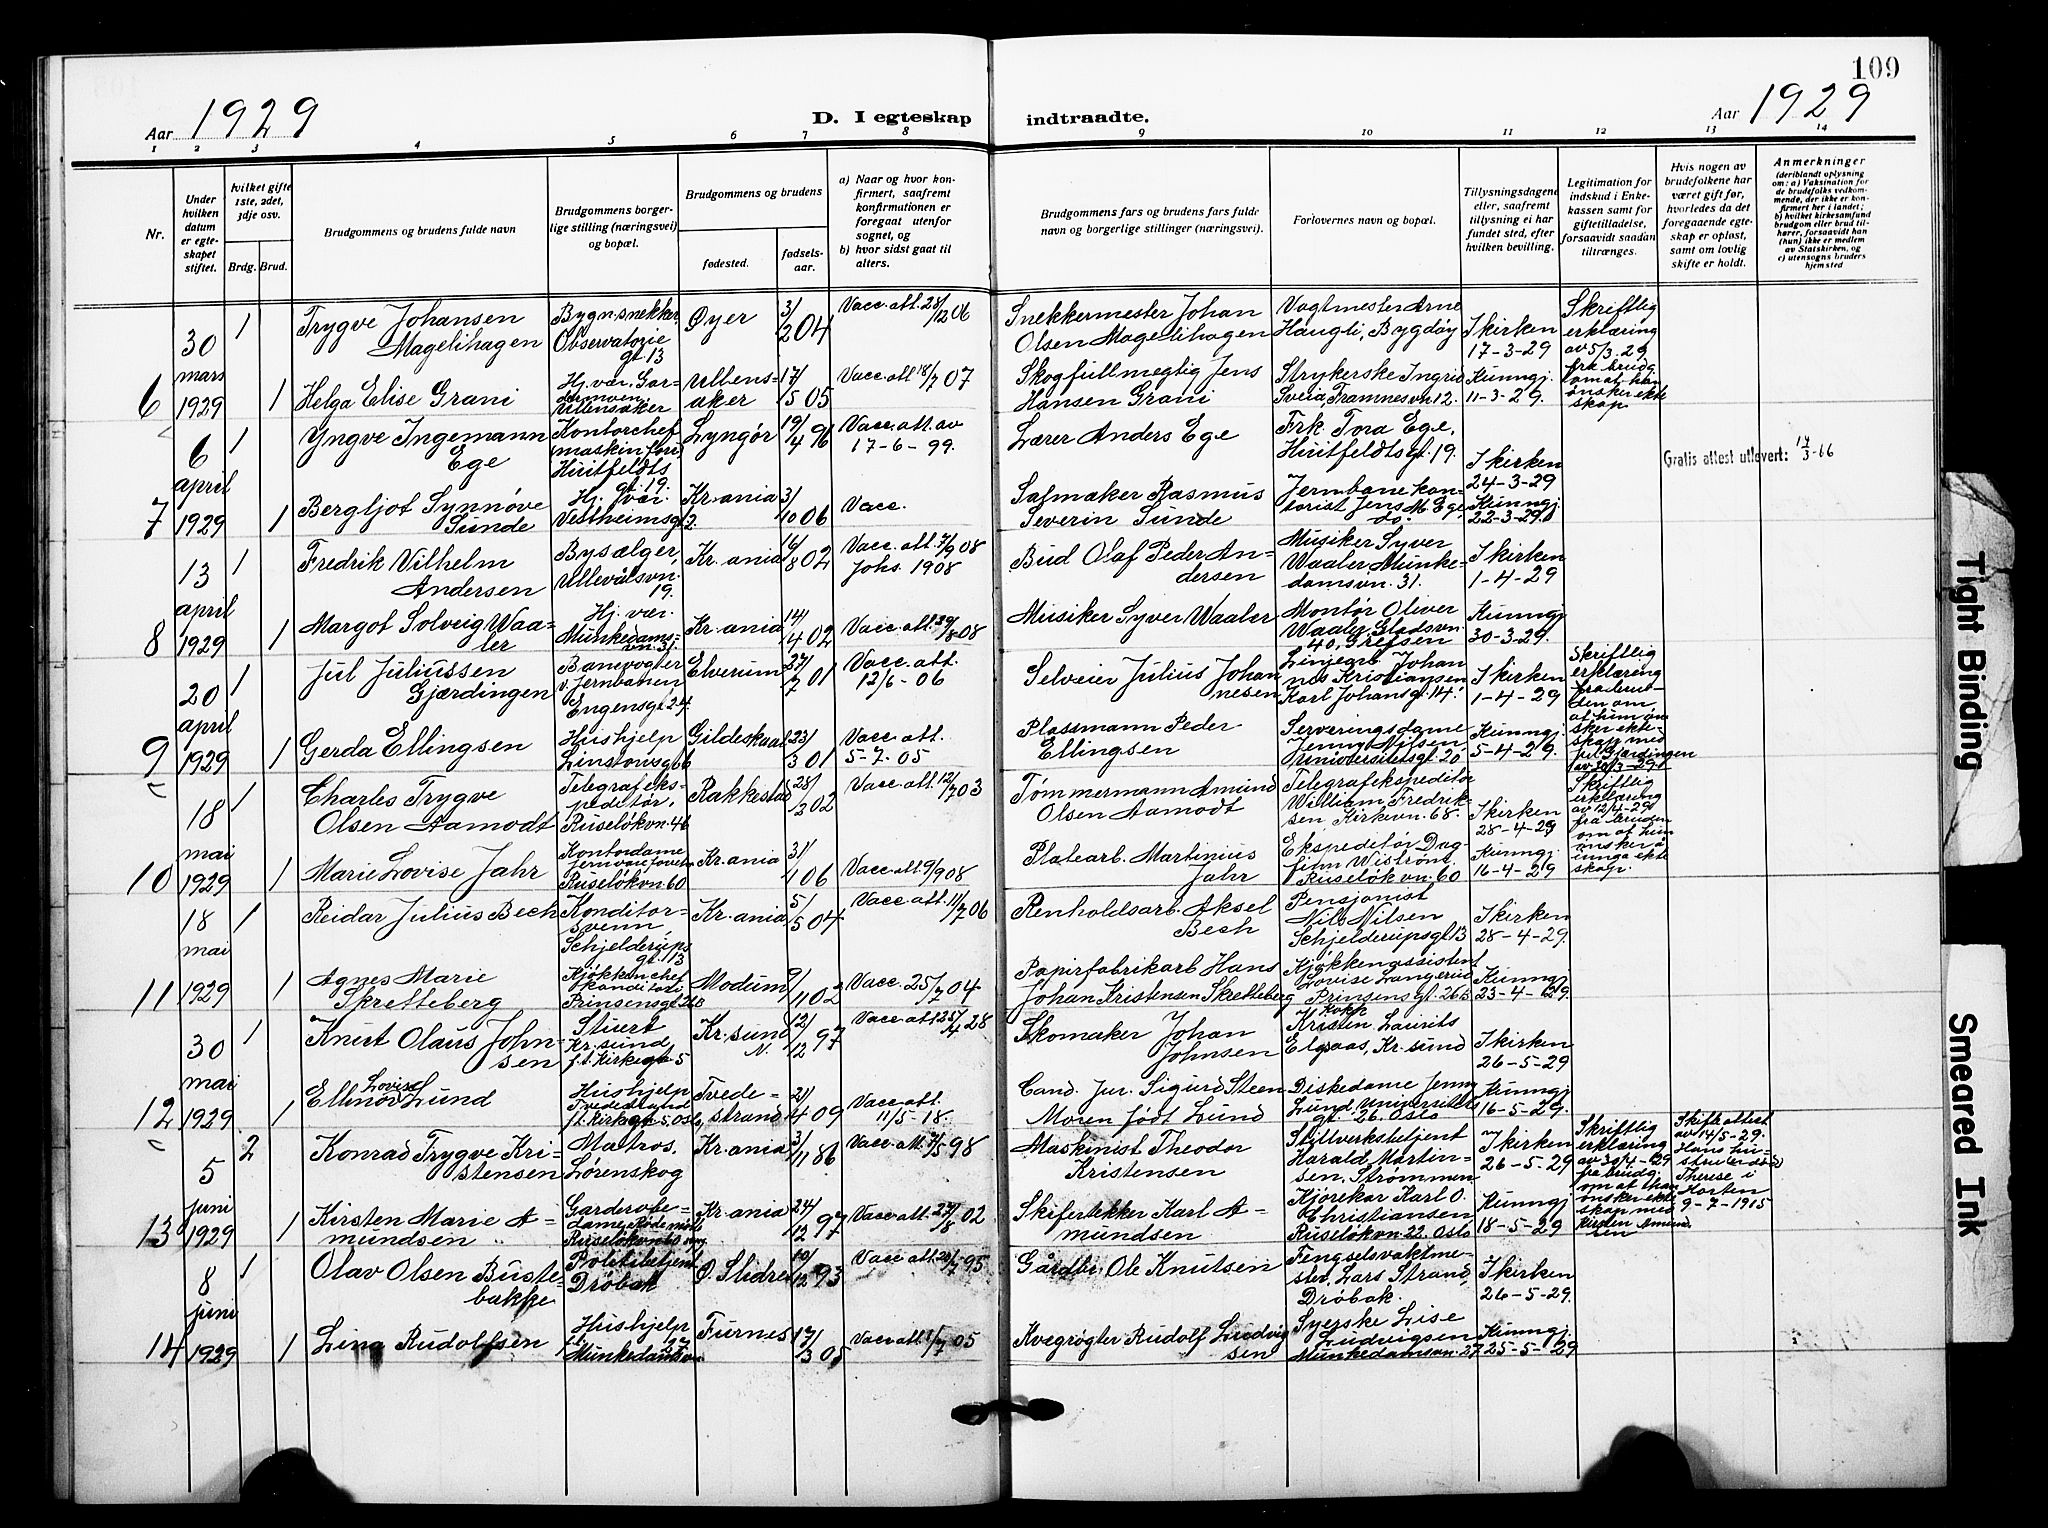 109
Aar 1929
D. I egteskap indtraadte.
Aar 1929
1 2 3 4 5 6 7 8 9 10 11 12 13 14
Nr.
Under hvilken datum er egteskapet stiftet.
hvilket gifte 1ste, 2det, 3dje osv.
Brdg. Brud.
Brudgommens og brudens fulde navn
Brudgommens borgerlige stilling (næringsvei) og bopæl.
Brudgommens og brudens
fødested.
fødselsaar.
a) Naar og hvor konfirmert, saafremt konfirmationen er foregaat utenfor sognet, og
b) hvor sidst gaat til alters.
Brudgommens fars og brudens fars fulde navn og borgerlige stillinger (næringsvei).
Forlovernes navn og bopæl.
Tillysningsdagene eller, saafremt tillysning ei har fundet sted, efter hvilken bevilling.
Legitimation for indskud i Enkekassen samt for giftetilladelse, forsaavidt saadan tiltrænges.
Hvis nogen av brudefolkene har været gift før, hvorledes da det foregaaende egteskap er opløst, samt om lovlig skifte er holdt.
Anmerkninger
(deriblandt oplysning om: a) Vaksination for de brudefolks vedkommende, der ikke er konfirmert her i landet; b) hvilket kirkesamfund brudgom eller brud tilhører, forsaavidt han (hun) ikke er medlem av Statskirken, og c) utensogns bruders hjemsted
6
30 mars 1929
1
Trygve Johansen Magelihagen
Bygn.snekker, Observatorie gt. 13
Øyer
3/2 04
Vacc. att. 28/12 06
Snekkermester Johan Olsen Magelihagen
Vagtmester Arne Haugli, Bygdøy
I kirken 17-3-29
Skriftlig erklæring av 5/3. 29 fra brudg. om at han ønsker ekteskap.
1
Helga Elise Grani
Hj. vær. Ullensaker
Ullensaker
17/5 05
Vacc. att. 18/7 07
Skogfullmegtig Jens Hansen Grani
Strykerske Ingrid Sveia, Framnesvn 12.
Kunngj. 11-3-29.
7
6 april 1929
1
Yngve Ingemann Ege
Kontorchef (maskinforr.) Huitfeldts gt. 19.
Lyngør
19/4 96
Vacc. att. av 17-6-99.
Lærer Anders Ege
Frk. Tora Ege, Huitfeldtsgt. 19.
I kirken 24-3-29
Gratis attest utlevert: 17/3-66
1
Bergljot Synnøve Sunde
Hj. vær. Vestheimsgt 2.
Kr.ania
3/10 06
Vacc.
Salmaker Rasmus Severin Sunde
Jernbanekontorist Jens M. Ege, do.
Kunngj. 22-3-29.
8
13 april 1929
1
Fredrik Vilhelm Andersen
Bysælger, Ullevålsvn. 19.
Kr. ania
16/8 02
Vacc. att. 7/9 08 Johs. 1908
Bud Olaf Peder Andersen
Musiker Syver Waaler, Munkedamsvn. 31.
I kirken 1-4-29
1
Margot Solveig Waaler
Hj. vær. Munkedamsvn. 31.
Kr. ania
14/4 02
Vacc. att. 29/8 08
Musiker Syver Waaler
Montør Oliver Waaler, Gladsvn. 40, Grefsen
Kunngj. 30-3-29.
9
20 april 1929
1
Jul Juliussen Gjærdingen
Banevogter v. Jernbanen Engensgt 24.
Elverum
27/7 01
Vacc. att. 12/6-06
Selveier Julius Johannesen
Linjearb. Johannes Kristiansen Karl Johansgt. 14.
I kirken 1-4-29
Skriftlig erklæring fra bruden om, at hun ønsker ekteskap med Jul Gjærdingen av 30/3-29.
1
Gerda Ellingsen
Hushjelp Linstowsgt 6
Gildeskaal
23/3 01
Vacc. att. 5-7.05
Plassmann Peder Ellingsen
Serveringsdame Jenny Nilsen, Universitetsgt. 20
Kunngj. 5-4-29.
10
18 mai 1929
1
Charles Trygve Olsen Aamodt
Telegrafekspeditør, Ruseløkvn. 46
Rakkestad
28/3 02
Vacc. att. 12/7 03
Tømmermann Amund Olsen Aamodt
Telegrafekspeditør William Fredriksen, Kirkevn. 68.
I kirken 28-4-29
Skriftlig erklæring av 12/4-29 fra bruden om at hun ønsker å inngå ekteskap.
1
Marie Lovise Jahr
Kontordame Ruseløkvn 60
Kr. ania
31/1 06
Vacc. att. 9/9 08
Platearb. Martinius Jahr
Ekspeditør Dagfinn Wistrøm. Ruseløkvn. 60
Kunngj. 16-4-29
11
18 mai 1929
1
Reidar Julius Bech
Konditorsvenn, Schjelderups gt. 13
Kr. ania
5/5 04
Vacc. att. 11/7 06
Renholdsarb. Aksel Bech
Pensjonist Nils Nilsen Schjelderupsgt 13
I kirken 28-4-29.
1
Agnes Marie Skretteberg
Kjøkkenchef Konditori Prinsensgt 26B
Modum
9/11 02
Vacc. 25/7 04
Papirfabrikarb. Hans Johan Kristensen Skretteberg
Kjøkkenassistent Lovise Langerud Prinsensgt. 26B.
Kunngj. 23-4-29.
12
30 mai 1929
1
Knut Olaus Johnsen
Stuert Kr.sund f.t. Kirkegt 5
Kr.sund N.
12/12 97
Vacc. att 25/4 28
Skomaker Johan Johnsen
Kokk Kristen Laurits Elgsaas, Kr.sund
I kirken 26-5-29
1
Ellinor Lovise Lund
Hushjelp Tvedestrand f.t. Kirkegt 5, Oslo
Tvedestrand
21/4 09
Vacc. att. 11/5-18.
Cand. jur. Sigurd Steen Moren født Lund
Diskedame Jenny Lund, Universitetsgt. 26. Oslo
Kunngj. 16-5-29.
13
5 juni 1929
2
Konrad Trygve Kristensen
Matros. Lørenskog
Kr. ania
3/11 86
Vacc. att. 7/5 98
Maskinist Theodor Kristensen
Stillverksbetjent Harald Martinsen, Strømmen
I kirken 26-5-29
Skriftlig erklæring av 30/4-29 fra brudg. om at han ønsker ekteskap med Kirsten Amundsen
Skifteattest av 14/5-29. Hans hustru døde Therese i Horten 9-7-1905
1
Kirsten Marie Amundsen
Garderobedame, Røde mølle Ruseløkvn 60
Kr. ania
24/12 97
Vacc. att. 27/8 02
Skifertekker Karl Amundsen
Kjørekar Karl O. Christiansen Ruseløkvn. 22. Oslo
Kunngj. 18-5-29
14
8 juni 1929
1
Olav Olsen Bustebakke
Politibetjent Drøbak
Ø. Slidre
10/12 93
Vacc att 20/7 95
Gårdbr. Ole Knutsen
Fengselsvaktmester, Lars Strand, Drøbak.
I kirken 26-5-29.
1
Lina Rudolfsen
Hushjelp Munkedamsvn 27
Furnes
17/3 05
Vacc. att. 1/7 05
Kvegrøgter Rudolf Ludvigsen
Syerske Lise Ludvigsen Munkedamsvn. 27
Kunngj. 25-5-29
Tight Binding
Smeared Ink